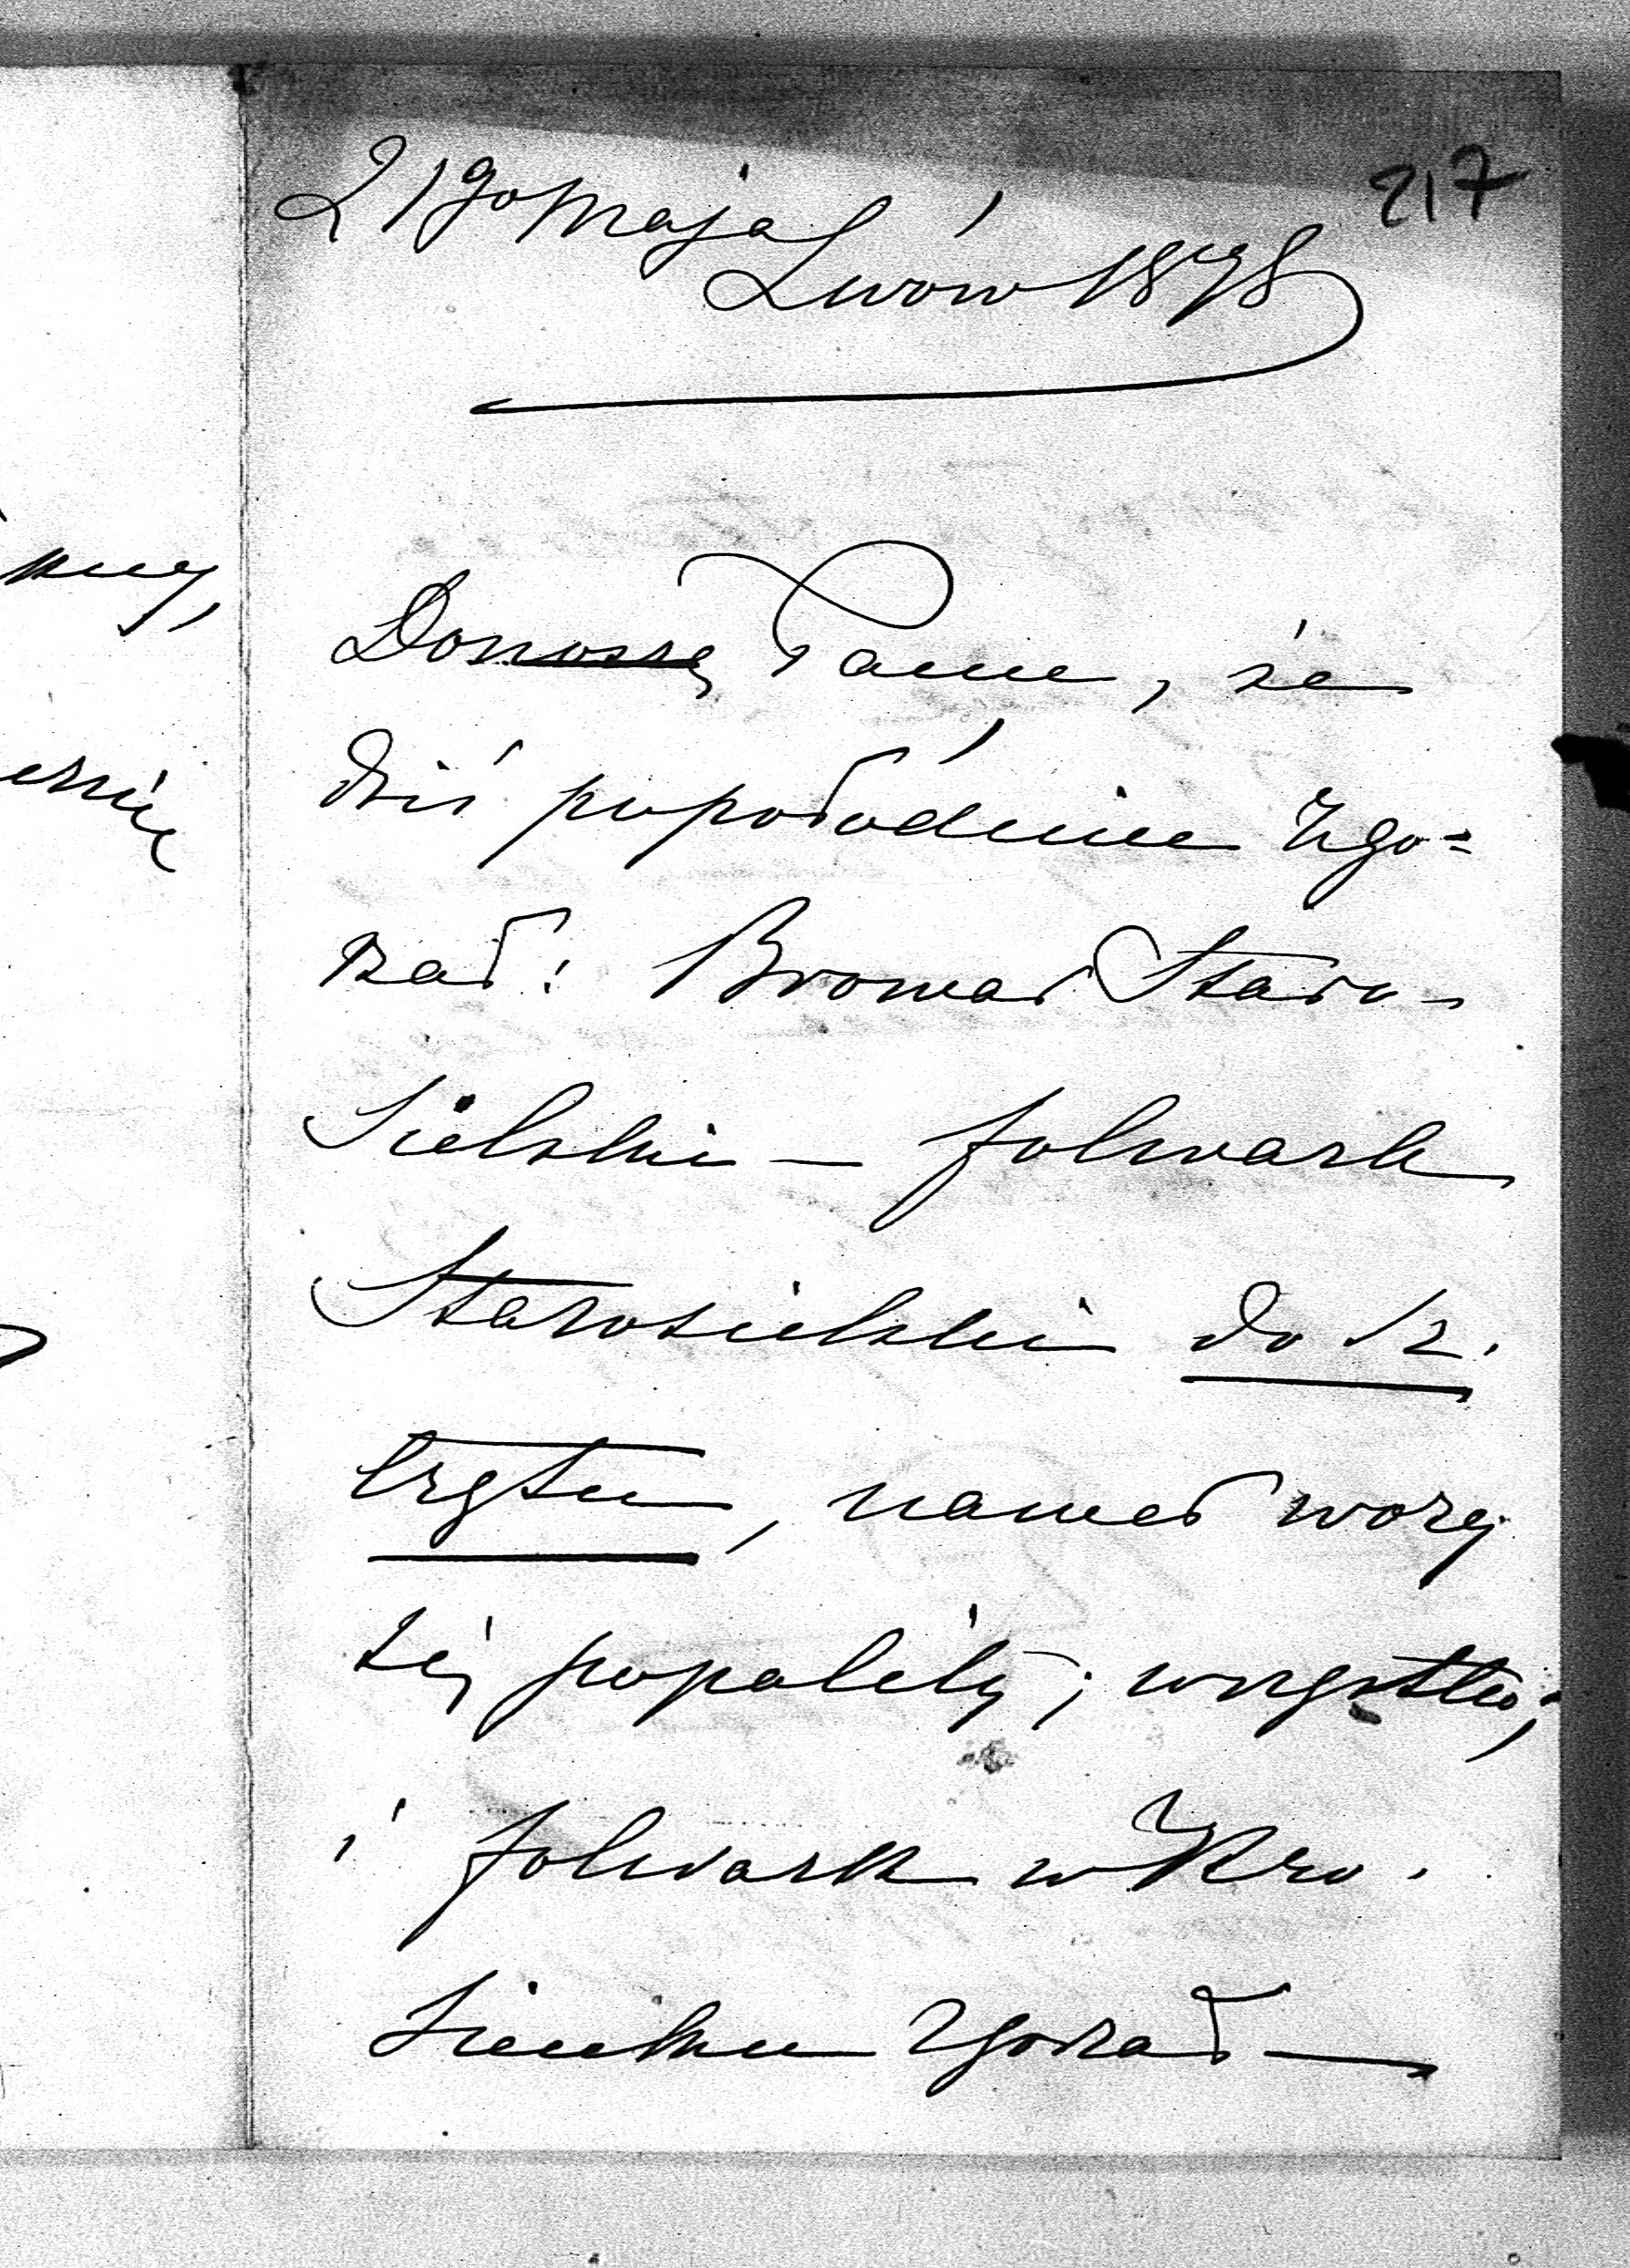 217
21go Maja
Lwów 1878
Donoszę Panie, że
dziś popołódniu zgo=
rzał: Browar Staro-
Sielski — folwark
Starosielski do sz.
czętu, nawet wozy
się popaliły; wszystko;
i folwark w Kro.
sienku zgorzał —